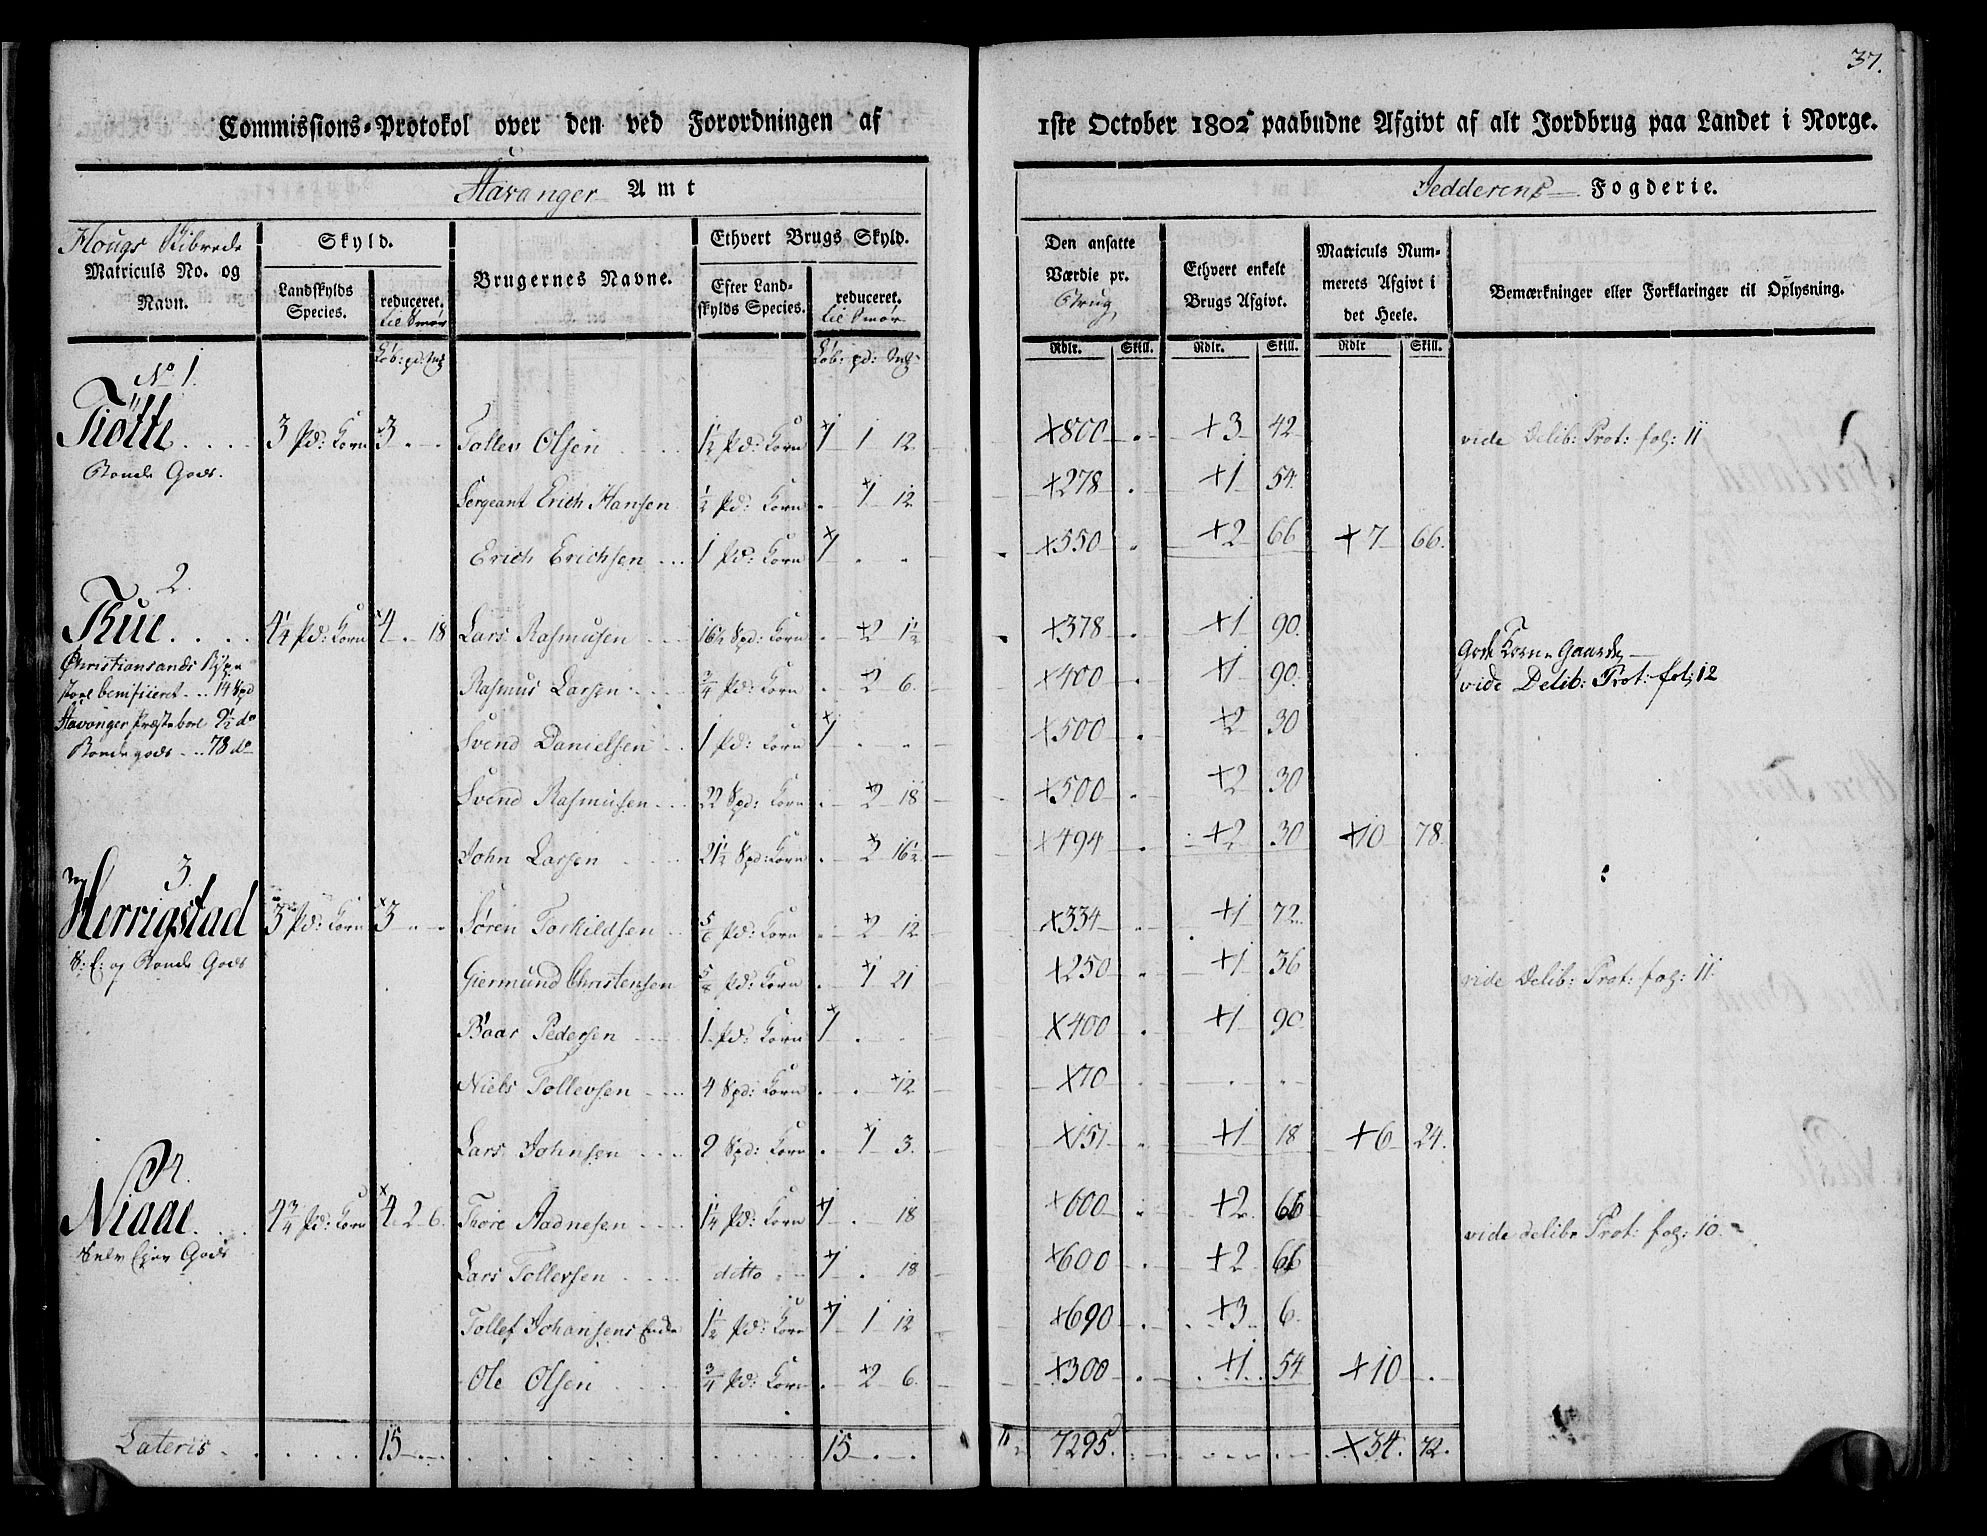 37.
Commissions-Protokol over den ved Forordningen af 1ste October 1802 paabudne Afgivt af alt Jordbrug paa Landet i Norge.
Stavanger Amt
Jedderens Fogderie.
Hougs Skibrede
Matriculs No. og Navn.
Skyld.
Landskylds Species.
reduceret. til Smör
Brugernes Navne.
Ethvert Brugs Skyld.
Efter Landskylds Species.
reduceret. til Smör
Den ansatte Værdie pr. Brug
Ethvert enkelt Brugs Afgivt.
Matriculs Nummerets Afgivt i det Heele.
Bemærkninger eller Forklaringer til Oplysning.
Rdlr. Skill. Rdlr. Skill. Rdlr Skill.
No 1.
Tiøtte 3 Pd: Korn 3 Tollev Olsen 1½ Pd: Korn 1 1 12 800 3 42 vide Delib: Prot: fol: 11
Bonde Gods.
Sergeant Erich Hansen ½ Pd: Korn 1 12 278 1 54
Erich Erichsen 1 Pd: Korn 1 550 2 66 7 66.
2.
Thue 4¼ Pd: Korn 4 18 Lars Rasmusen 16½ Spd: Korn 2 1½ 378 1 90.
Christiansands Bispe
stoel benificeret 14 Spd
Stavanger Præstebord 9½ do
Bondegods 78 do
Gode Korn Gaarde
vide Delib: Prot: fol: 12
Rasmus Larsen ¾ Pd: Korn 2 6. 400 1 90.
Svend Danielsen 1 Pd: Korn 1 500 2 30
Svend Rasmusen 22 Spd: Korn 2 18 500 2 30
John Larsen 21½ Spd: Korn 2 16½ 494 2 30 10 78.
3.
Herrigstad 3 Pd: Korn 3 Søren Torkildsen 5/6 Pd: Korn 2 12 334 1 72.
S: E: og Bonde Gods
Giermund Christensen 5/8 Pd: Korn 1 21 250 1 36 vide Delib: Prot: fol: 11.
Baar Pedersen 1 Pd: Korn 1 400 1 90
Niels Tollevsen 4 Spd: Korn 12 70
Lars Johnsen 9 Spd: Korn 1 3. 151 1 18 6 24.
4.
Niaae 4¾ Pd: Korn 4 2 6. Thore Aadnesen 1¼ Pd: Korn 1 18 600 2 66 vide delib: Prot: fol: 10.
Selv Ejer Gods
Lars Tollevsen ditto 1 18 600 2 66
Tollef Johansens Enke 1½ Pd: Korn 1 1 12 690 3 6.
Ole Olsen ¾ Pd: Korn 2 6. 300 1 54 10
Lateris 15 15 7295. 34. 72.